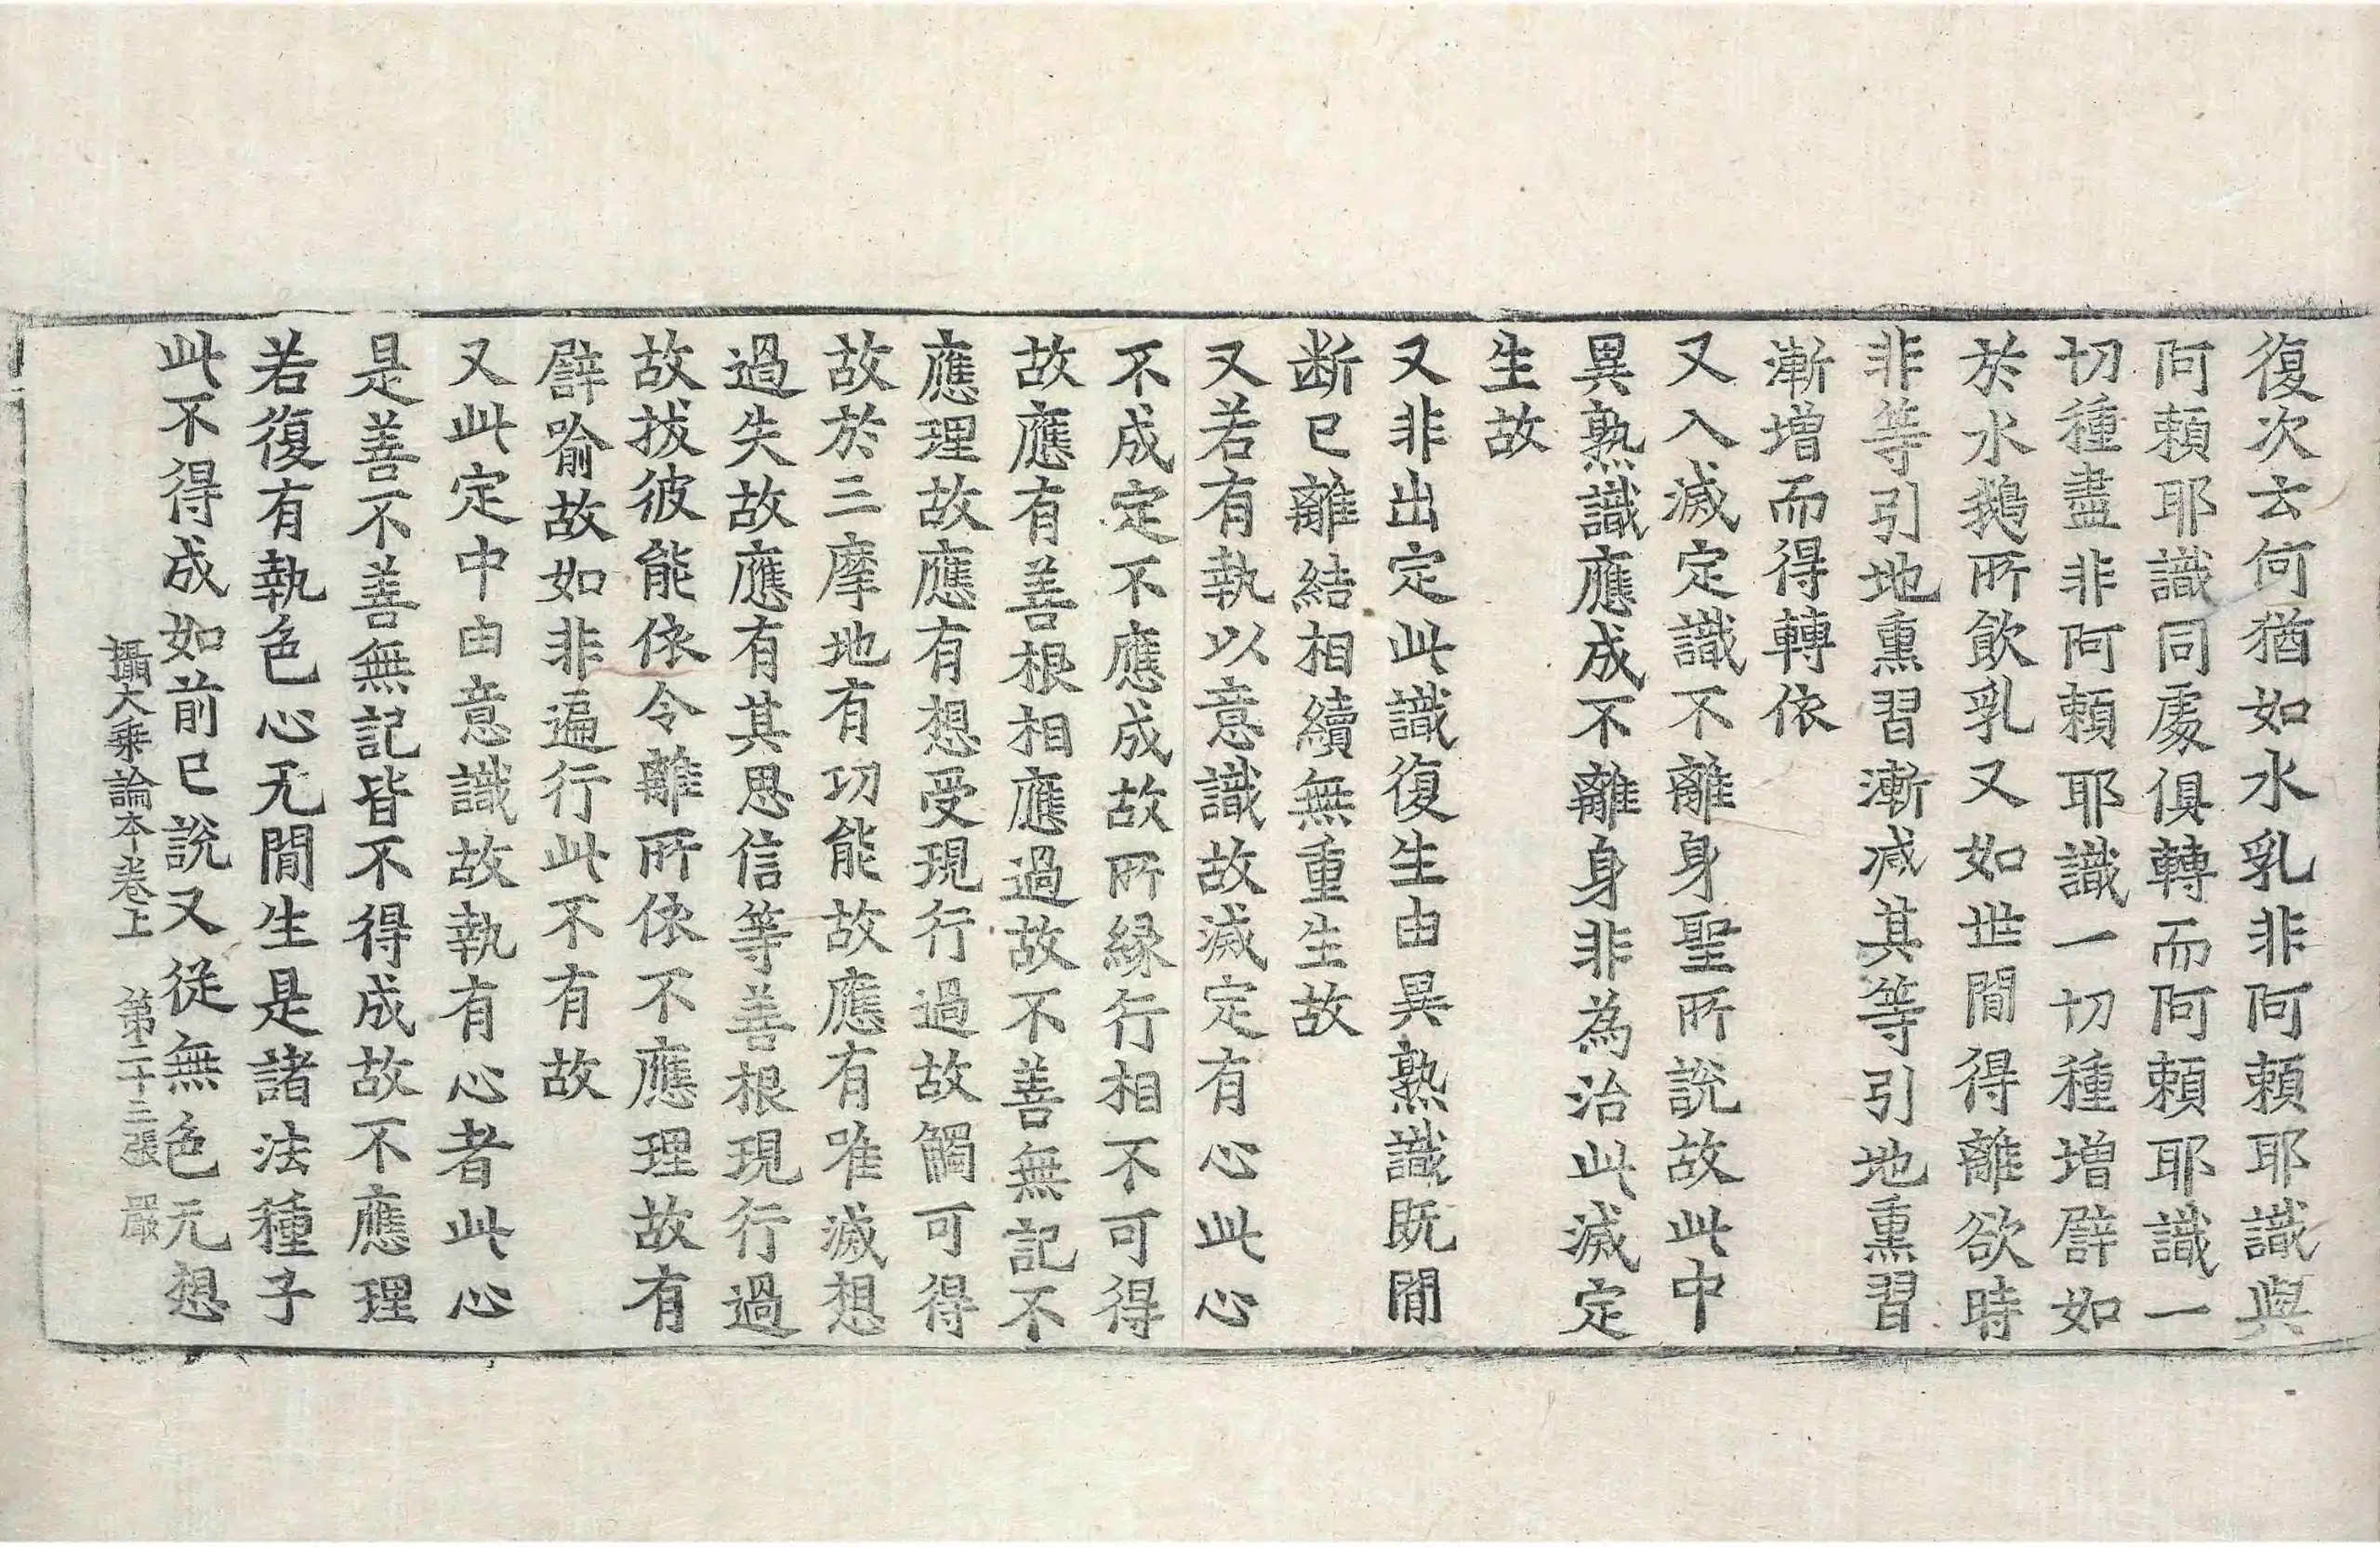 復次云何猶如水乳非阿頼耶識與
阿頼耶識同處俱轉而阿頼耶識一
切種盡非阿頼耶識一切種增譬如
於水鵝所飲乳又如世間得離欲時
非等引地熏習漸減其等引地熏習
漸增而得轉依
又入滅定識不離身聖所說故此中
異熟識應成不離身非為治此滅定
生故
又非出定此識復生由異熟識既間
断已離結相續無重生故
又若有執以意識故滅定有心此心
不成定不應成故所縁行相不可得
故應有善根相應過故不善無記不
應理故應有想受現行過故觸可得
故於三摩地有功能故應有唯滅想
過失故應有其思信等善根現行過
故拔彼能依令離所依不應理故有
譬喻故如非遍行此不有故
又此定中由意識故執有心者此心
是善不善無記皆不得成故不應理
若復有執色心无間生是諸法種子
此不得成如前已說又從無色无想
攝大乗論本卷上 第二十三張 嚴